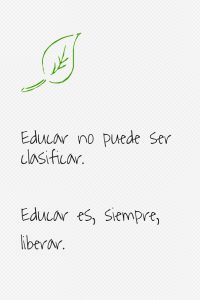 Educar no puede ser
clasificar.
Educar es, siempre,
liberar.